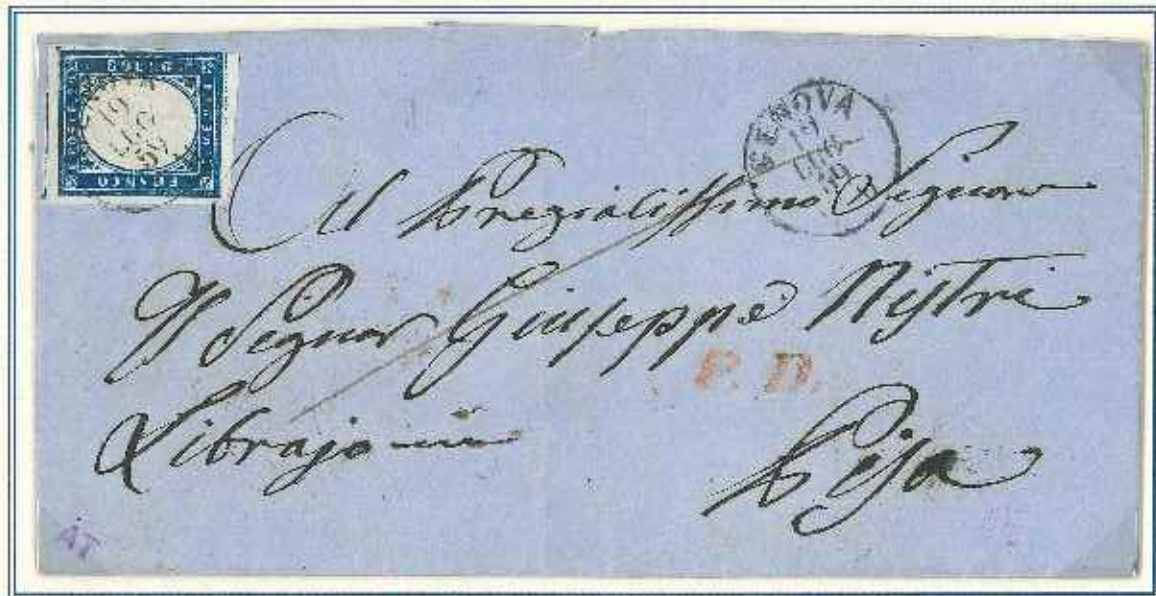 BOLLO
FRANCO
GENOVA
19
LUG
59
Al Pregiatissimo Signore
Il Signor Giuseppe Nistri
P. D.
Librajo in
Pisa
AT